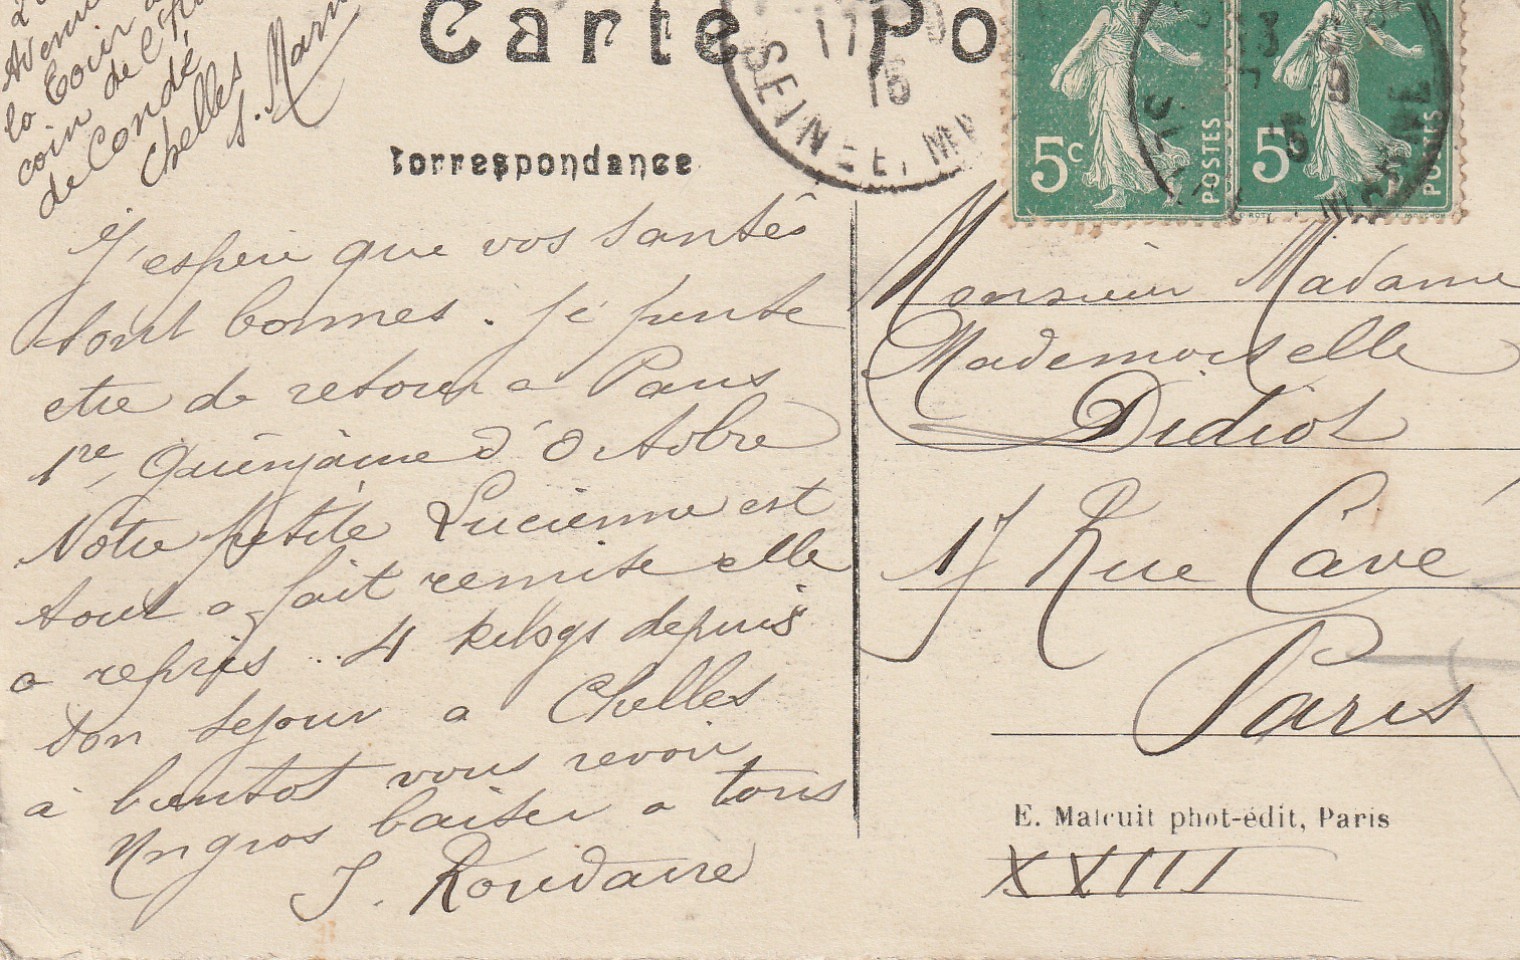 Avenue
la Tour
coin de
de Condé
Chelles
S. Marn
Carte Po
Correspondance
17
15
SEINE ET MA
5c
POSTES
5
POSTES
J'espere que vos santés
sont bonnes. Je pense
etre de retour a Paris
1re Quinzaine d'Octobre
Notre petite Lucienne est
tout a fait remise elle
a repris .. 4 kilogs depuis
son sejour a Chelles
à bientot vous revoir
Un gros baiser a tous
J. Roudaire
Monsieur Madame
Mademoiselle
Didiot
17 Rue Cavé
Paris
E. Malcuit phot-édit, Paris
XXIII